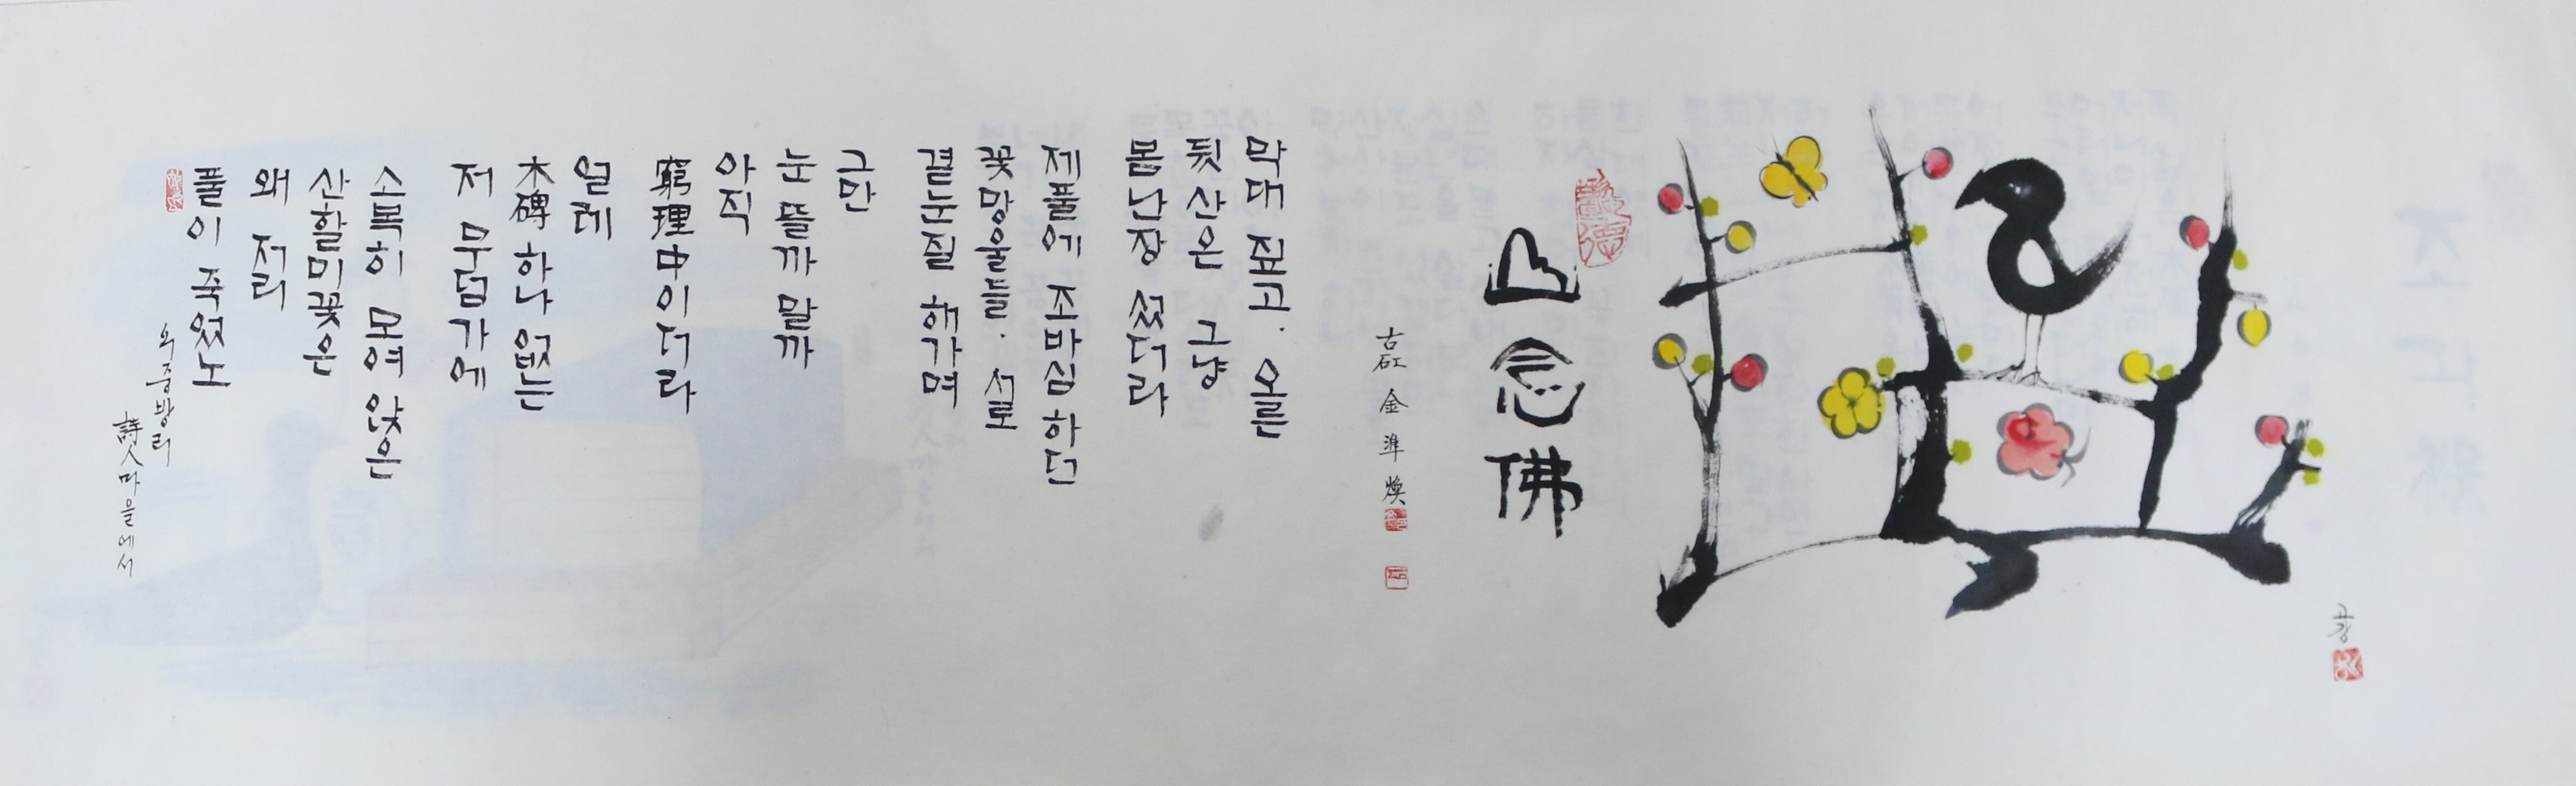 山念佛
古矼 金準煥
막대 짚고. 오른
뒷산은 그냥
봄난장 섰더라
제풀에 조바심 하던
꽃망울들. 서로
곁눈질 해가며
그만
눈 뜰까 말까
아직
窮理中이더라
얼레
木碑 하나 없는
저 무덤가에
소복히 모여 앉은
산할미꽃은
왜 저리
풀이 죽었노
오중방리
詩人마을에서